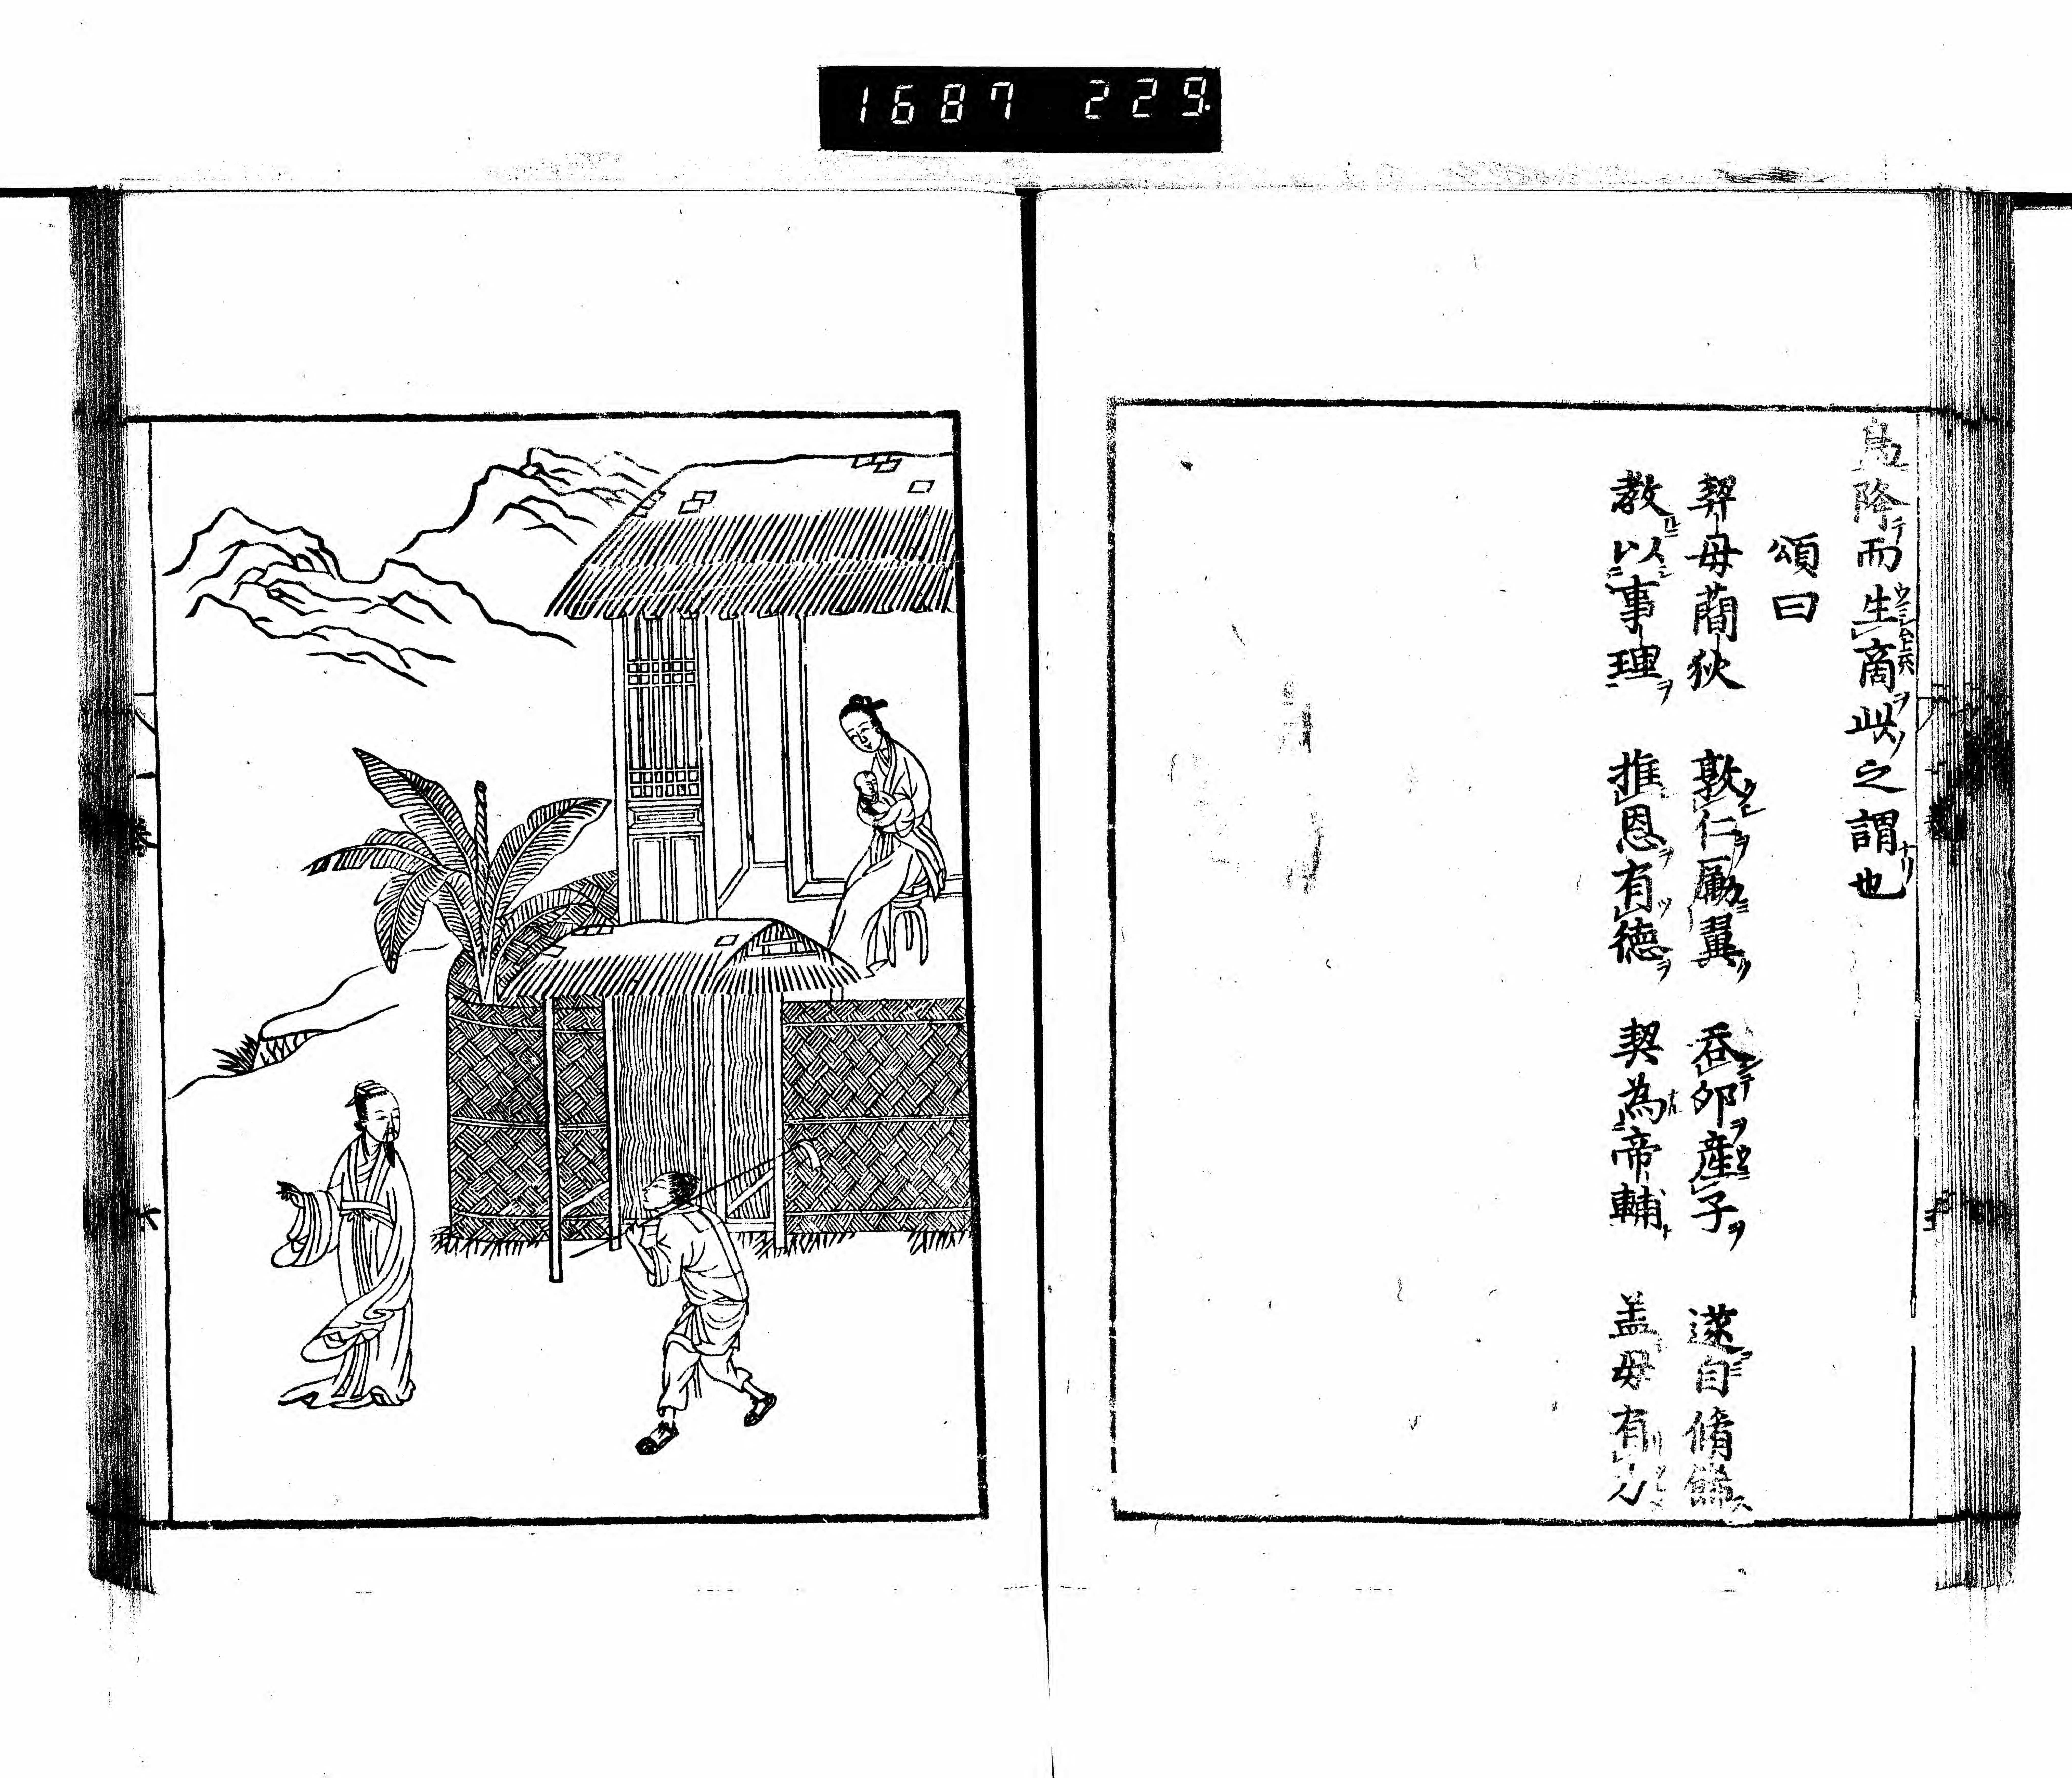 1687 229.
鳥降而生商此之謂也
頌曰
契母蕳狄 敦仁勵翼 吞卵産子 遂自脩飾
教以事理 推恩有徳 契為帝輔 盖母有力